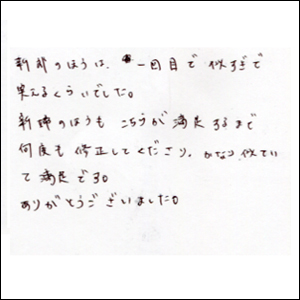 新郎のほうは、一回目で似すぎで
笑えるくらいでした。
新婦のほうも こちらが満足するまで
何度も修正してくださり、かなり似てい
て満足です。
ありがとうございました。